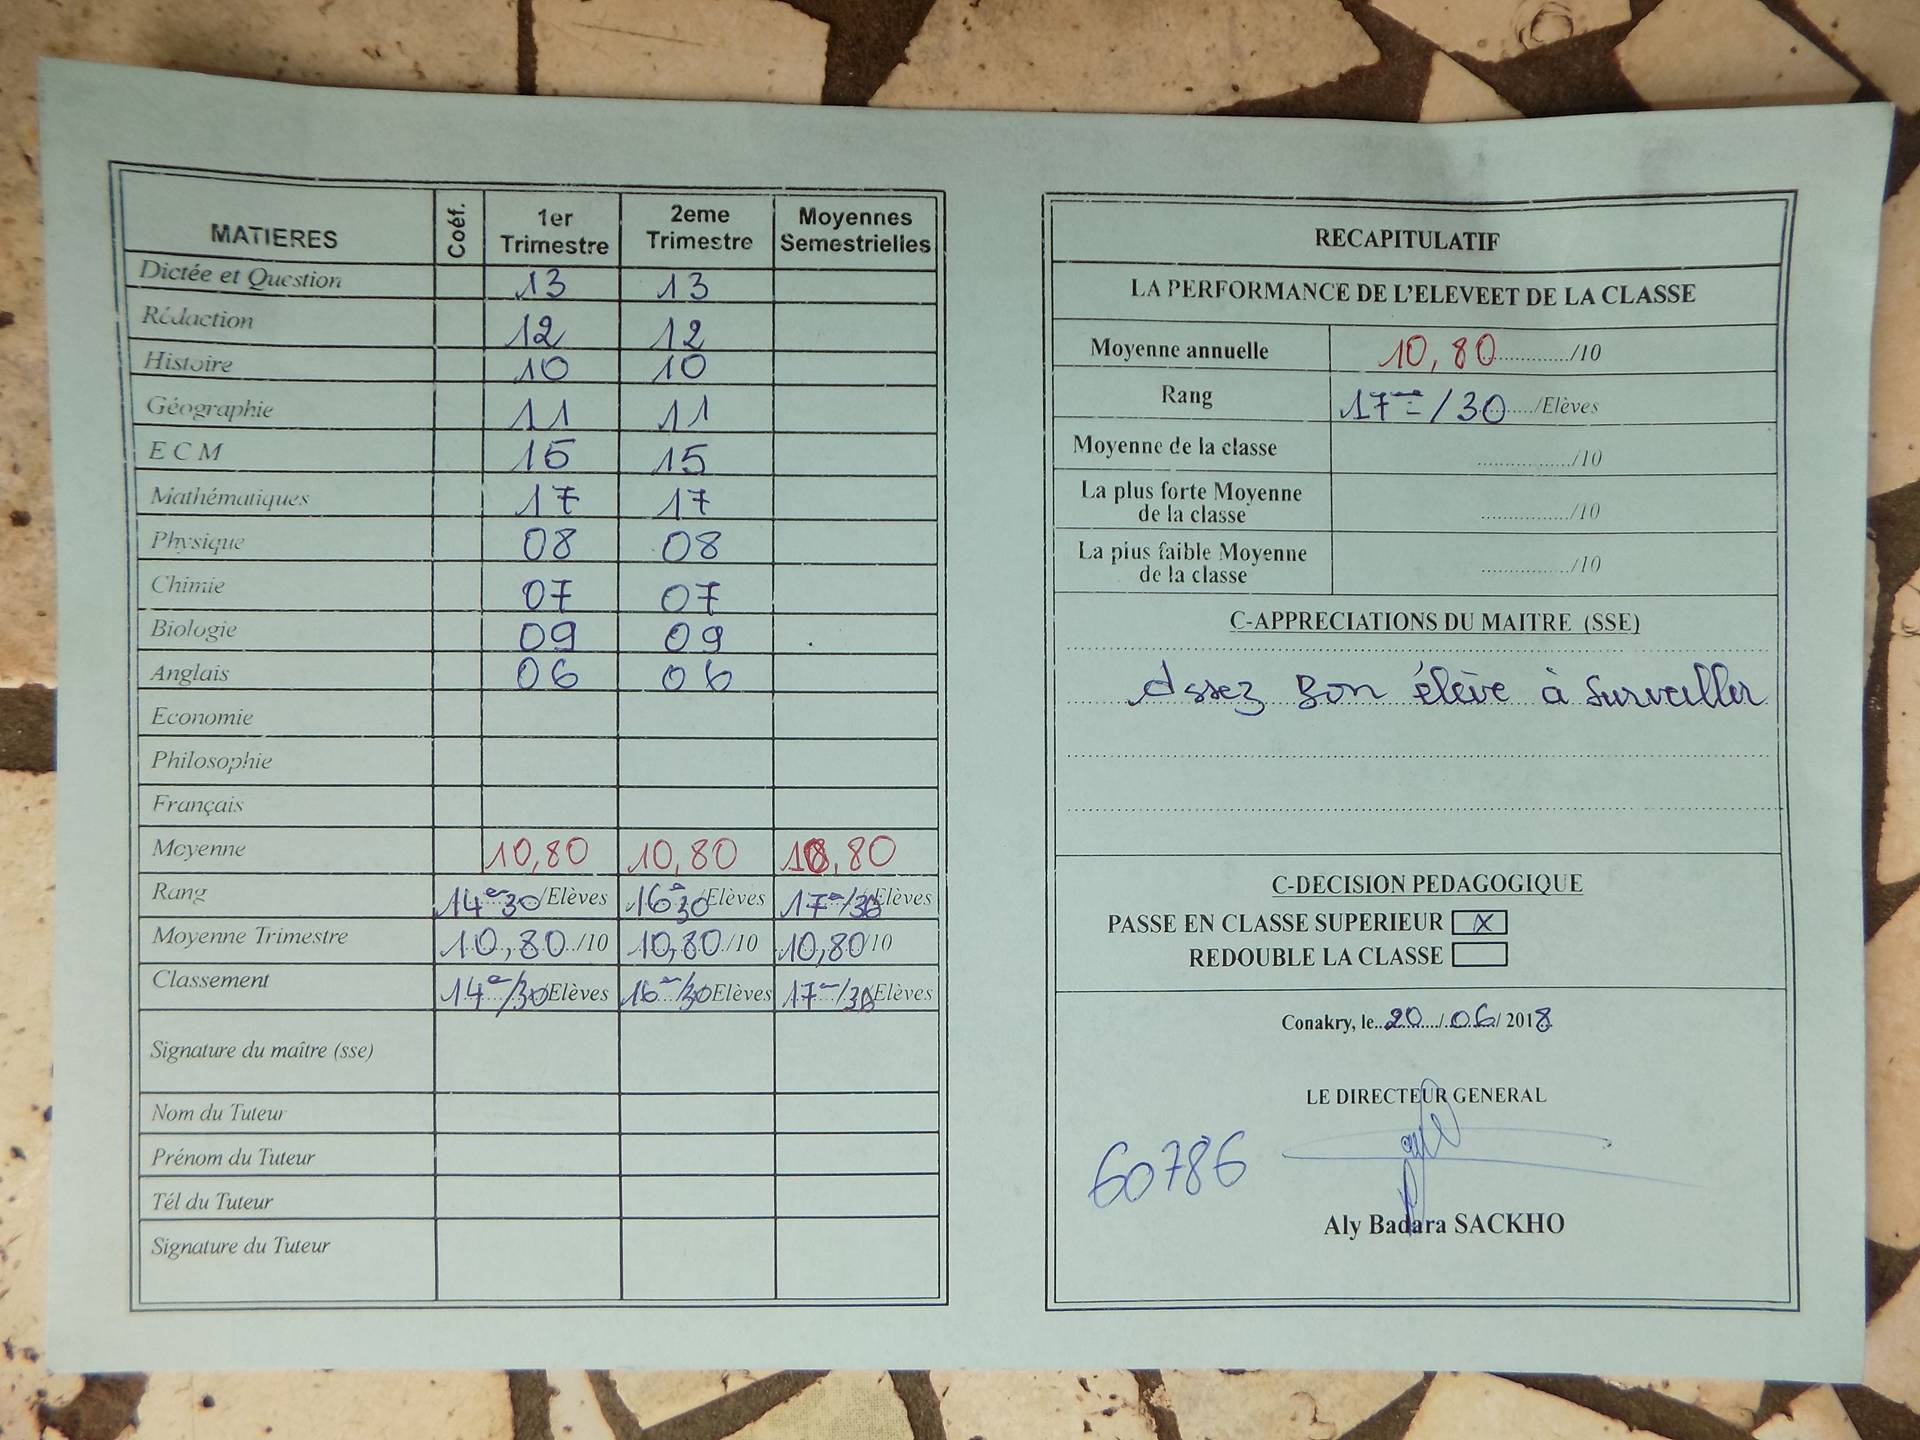 MATIERES Coéf. 1er Trimestre 2eme Trimestre Moyennes Semestrielles
Dictée et Question 13 13
Rédaction 12 12
Histoire 10 10
Géographie 11 11
E C M 15 15
Mathématiques 17 17
Physique 08 08
Chimie 07 07
Biologie 09 09
Anglais 06 06
Economie
Philosophie
Français
Moyenne 10,80 10,80 10,80
Rang 14e 30 /Elèves 16e 30 /Elèves 17e/30 /Elèves
Moyenne Trimestre 10,80 /10 10,80 /10 10,80 /10
Classement 14e/30 Elèves 16e/30 Elèves 17e/30 Elèves
Signature du maître (sse)
Nom du Tuteur
Prénom du Tuteur
Tél du Tuteur
Signature du Tuteur
RECAPITULATIF
LA PERFORMANCE DE L'ELEVEET DE LA CLASSE
Moyenne annuelle 10,80 ............/10
Rang 17e/30 ....../Elèves
Moyenne de la classe ................/10
La plus forte Moyenne
de la classe ................/10
La plus faible Moyenne
de la classe ................/10
C-APPRECIATIONS DU MAITRE (SSE)
Assez Bon élève à surveiller
C-DECISION PEDAGOGIQUE
PASSE EN CLASSE SUPERIEUR X
REDOUBLE LA CLASSE
Conakry, le..20..../..06../ 2018
LE DIRECTEUR GENERAL
60786
Aly Badara SACKHO